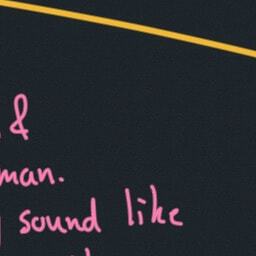 &
man.
sound like